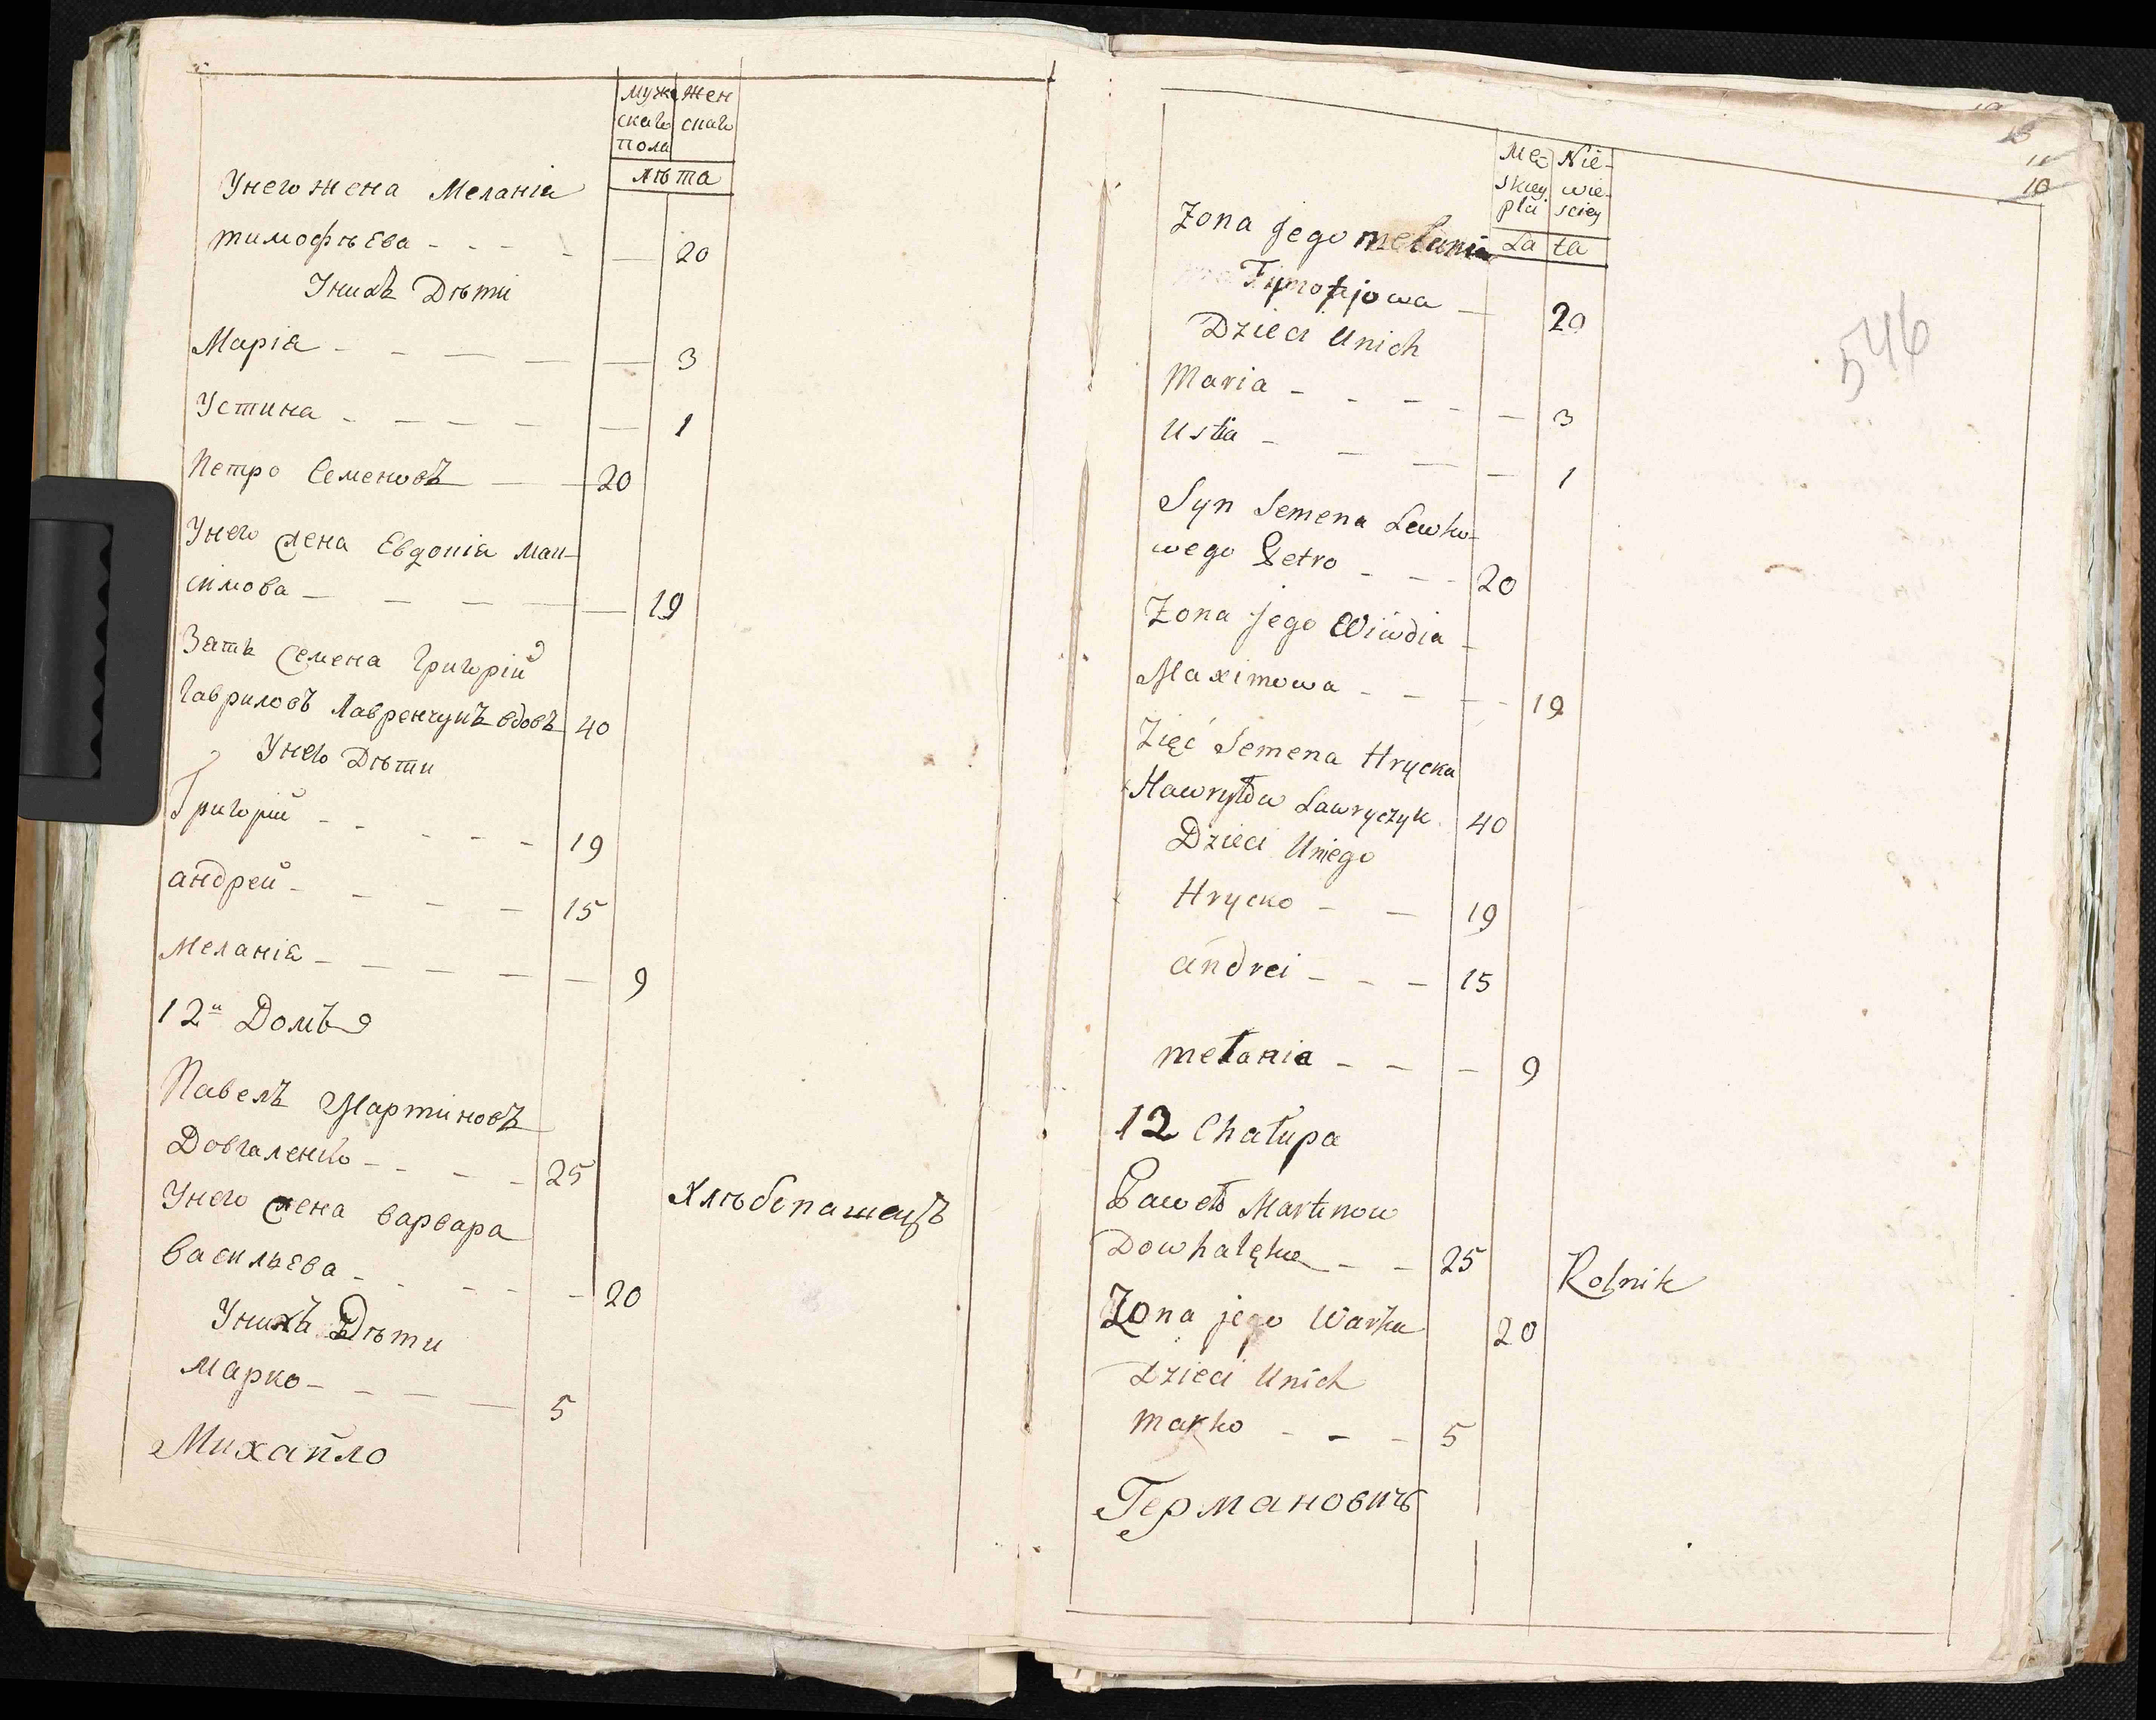 муже жен
скаго скаго
пола
лѣта
Унего жена Меланіа
тимофѣева - - - - — 20
Унихъ Дѣти
Маріа - - — — — 3
Устина - — — — — 1
Петро Семеновъ — — 20
Унего жена Евдокіа Мак-
симова — — — — — 19
Зять Семена Григорій
Гавриловъ Лавренчукъ вдовъ 40
Унего Дѣти
Григорій - - - - - 19
андрей - - — — 15
Меланіа - — — — — 9
12й Домъ
Павелъ Мартиновъ
Довгаленко - - - - 25
Хлѣбопашецъ
Унего жена варвара
васильева - - - - - 20
Унихъ Дѣти
Марко - - — — 5
Михайло
11
10
Mę- Nie-
skiey wie-
płci sciey
La ta
Zona jego melania
Tymofijowa — 20
Dzieci Unich
Maria - - - - — 3
Ustia - — — — 1
Syn Semena Lewko-
wego Petro - - - 20
Zona jego Wiwdia -
Maximowa - - - - 19
Zięć Semena Hrycka
Hawryłow Lawryczyk 40
Dzieci Uniego
Hrycko - — 19
andrei - - — 15
mełania - - — 9
12 Chałupa
Paweł Martinow
Dowhalęko - — 25
Rolnik
Zona jego Warka 20
Dzieci Unich
Marko - - - 5
Германовичъ
546